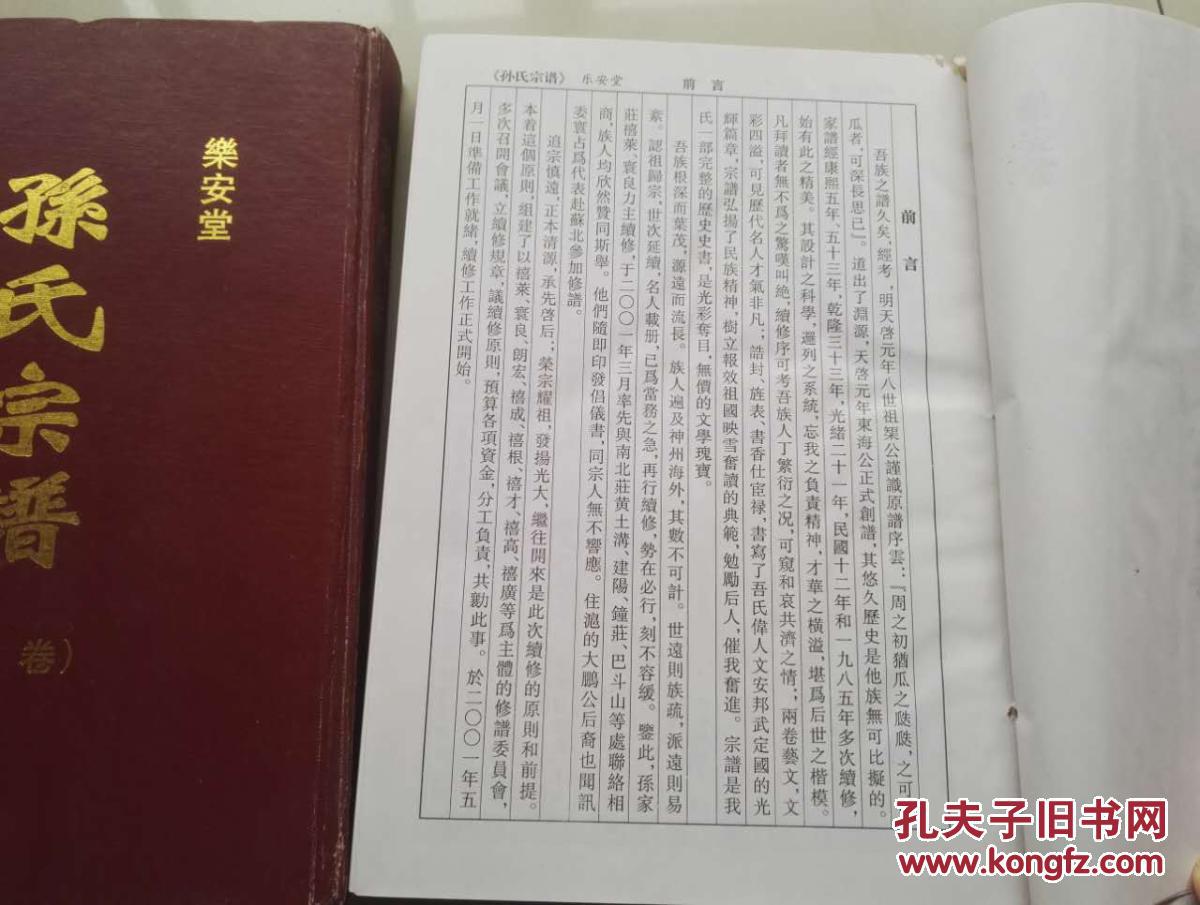 樂安堂
孫氏宗譜
卷）
《孙氏宗谱》 乐安堂 前言
前言
吾族之譜久矣，經考，明天啓元年八世祖榘公謹識原譜序雲：『周之初猶瓜之瓞瓞，之可
瓜者，可深長思已』。道出了淵源，天啓元年東海公正式創譜，其悠久歷史是他族無可比擬的。
家譜經康熙五年、五十三年，乾隆三十三年，光緒二十一年，民國十二年和一九八五年多次續修，
始有此之精美。其設計之科學，邏列之系統，忘我之負責精神，才華之橫溢，堪爲后世之楷模。
凡拜讀者無不爲之驚嘆叫絶，續修序可考吾族人丁繁衍之况，可窺和哀共濟之情；兩卷藝文，文
彩四溢，可見歷代名人才氣非凡；誥封、旌表、書香仕宦禄，書寫了吾氏偉人文安邦武定國的光
輝篇章，宗譜弘揚了民族精神，樹立報效祖國映雪奮讀的典範，勉勵后人，催我奮進。宗譜是我
氏一部完整的歷史史書，是光彩奪目，無價的文學瑰寶。
吾族根深而葉茂，源遠而流長。族人遍及神州海外，其數不可計。世遠則族疏，派遠則易
紊。認祖歸宗，世次延續，名人載册，已爲當務之急，再行續修，勢在必行，刻不容緩。鑒此，孫家
莊禧萊、寰良力主續修，于二〇〇一年三月率先與南北莊黄土溝、建陽、鐘莊、巴斗山等處聯絡相
商，族人均欣然贊同斯舉。他們隨即印發倡儀書，同宗人無不響應。住滬的大鵬公后裔也聞訊
委寰占爲代表赴蘇北參加修譜。
追宗慎遠，正本清源，承先啓后；榮宗耀祖，發揚光大，繼往開來是此次續修的原則和前提。
本着這個原則，組建了以禧萊、寰良、朗宏、禧成、禧根、禧才、禧高、禧廣等爲主體的修譜委員會，
多次召開會議，立續修規章，議續修原則，預算各項資金，分工負責，共勷此事。於二〇〇一年五
月一日準備工作就緒，續修工作正式開始。
孔夫子旧书网
www.kongfz.com